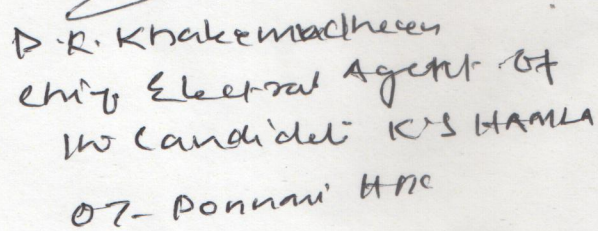 D.R. Khakemadheen
Chif Electral Agent of
the Candidet K.S HAMLA
07- Ponnani HPC